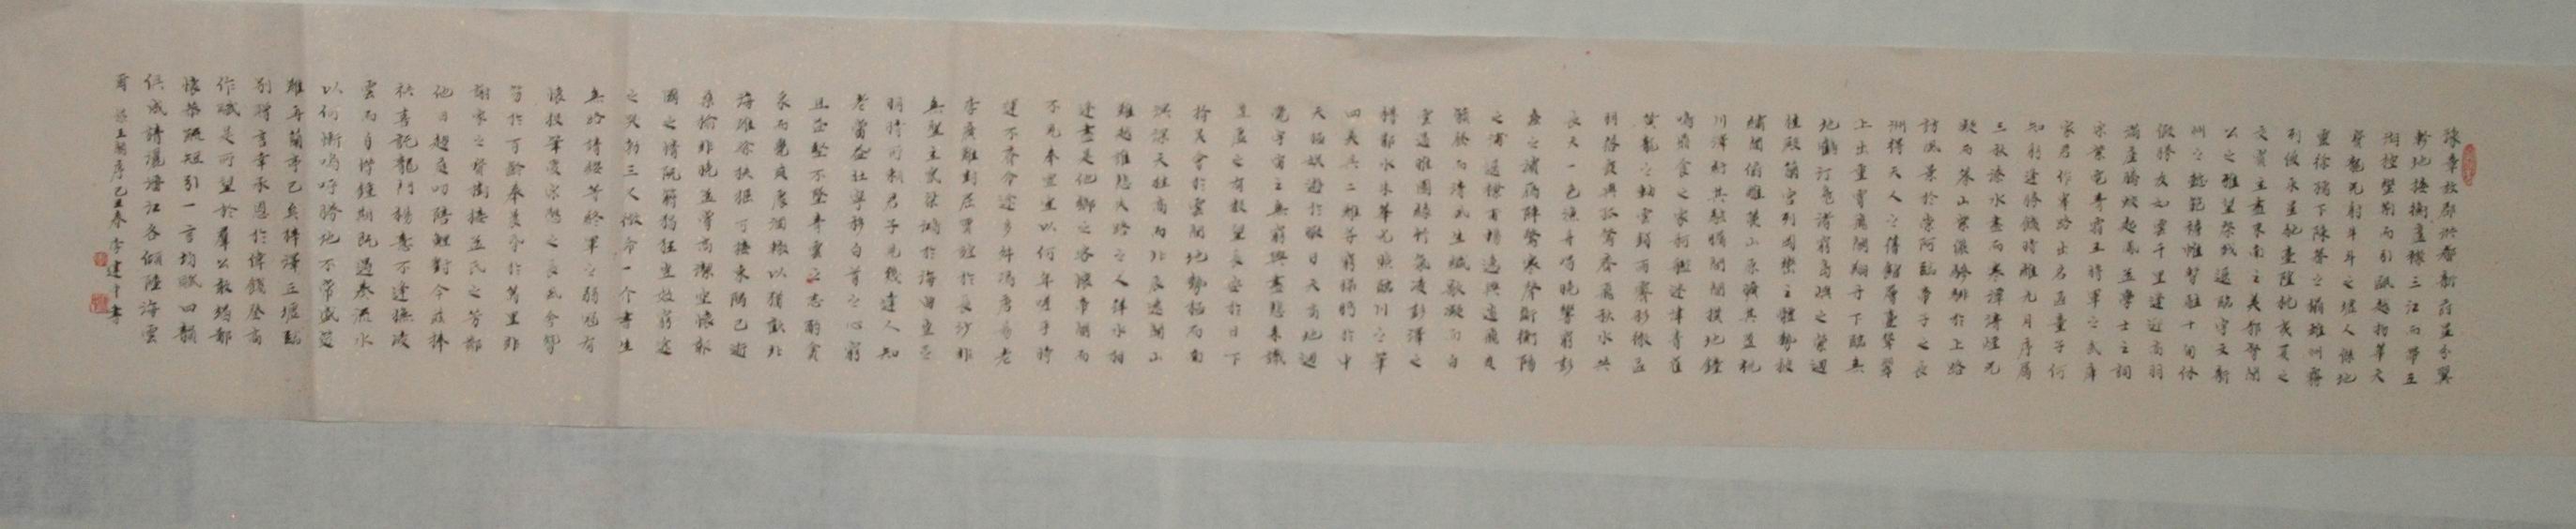 豫章故郡洪都新府星分翼
軫地接衡廬襟三江而帶五
湖控蠻荊而引甌越物華天
寶龍光射牛斗之墟人傑地
靈徐孺下陳蕃之榻雄州霧
列俊采星馳臺隍枕夷夏之
交賓主盡東南之美都督閻
公之雅望棨戟遙臨宇文新
州之懿範襜帷暫駐十旬休
假勝友如雲千里逢迎高朋
滿座騰蛟起鳳孟學士之詞
宗紫電青霜王將軍之武庫
家君作宰路出名區童子何
知躬逢勝餞時維九月序屬
三秋潦水盡而寒潭清煙光
凝而暮山紫儼驂騑於上路
訪風景於崇阿臨帝子之長
洲得天人之舊館層臺聳翠
上出重霄飛閣翔丹下臨無
地鶴汀鳧渚窮島嶼之縈迴
桂殿蘭宮列岡巒之體勢披
繡闥俯雕甍山原曠其盈視
川澤紆其駭矚閭閻撲地鐘
鳴鼎食之家舸艦迷津青雀
黃龍之軸雲銷雨霽彩徹區
明落霞與孤鶩齊飛秋水共
長天一色漁舟唱晚響窮彭
蠡之濱雁陣驚寒聲斷衡陽
之浦遙襟甫暢逸興遄飛爽
籟發而清風生纖歌凝而白
雲遏睢園綠竹氣凌彭澤之
樽鄴水朱華光照臨川之筆
四美具二難并窮睇眄於中
天極娛遊於暇日天高地迥
覺宇宙之無窮興盡悲來識
盈虛之有數望長安於日下
指吳會於雲間地勢極而南
溟深天柱高而北辰遠關山
難越誰悲失路之人萍水相
逢盡是他鄉之客懷帝閽而
不見奉宣室以何年嗟乎時
運不齊命途多舛馮唐易老
李廣難封屈賈誼於長沙非
無聖主竄梁鴻於海曲豈乏
明時所賴君子見機達人知
老當益壯寧移白首之心窮
且益堅不墜青雲之志酌貪
泉而覺爽處涸轍以猶歡北
海雖賒扶搖可接東隅已逝
桑榆非晚孟嘗高潔空懷報
國之情阮籍猖狂豈效窮途
之哭勃三尺微命一个書生
無路請纓等終軍之弱冠有
懷投筆愛宗愨之長風舍簪
笏於百齡奉晨昏於萬里非
謝家之寶樹接孟氏之芳鄰
他日趨庭叨陪鯉對今茲捧
袂喜託龍門楊意不逢撫凌
雲而自惜鍾期既遇奏流水
以何慚嗚呼勝地不常盛筵
難再蘭亭已矣梓澤丘墟臨
別贈言幸承恩於偉餞登高
作賦是所望於羣公敢竭鄙
懷恭疏短引一言均賦四韻
俱成請灑潘江各傾陸海雲
爾 滕王閣序己丑春 李建中書